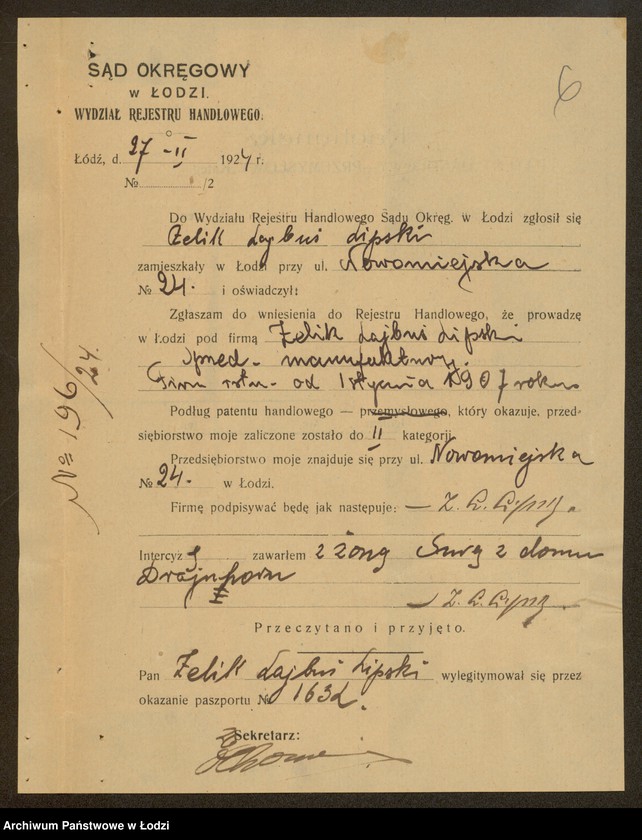 6
SĄD OKRĘGOWY
w ŁODZI.
WYDZIAŁ REJESTRU HANDLOWEGO.
Łódź, d. 27-II 1924 r.
№ /2
Do Wydziału Rejestru Handlowego Sądu Okręg. w Łodzi zgłosił się
Zelik Lajbuś Lipski
zamieszkały w Łodzi przy ul. Nowomiejska
№ 24. i oświadczył:
Zgłaszam do wniesienia do Rejestru Handlowego, że prowadzę
w Łodzi pod firmą Zelik Lajbuś Lipski
sprzed. manufaktury.
Firm istn. od 1 stycznia 1907 roku
Podług patentu handlowego — przemysłowego, który okazuje, przed-
siębiorstwo moje zaliczone zostało do II kategorji.
Przedsiębiorstwo moje znajduje się przy ul. Nowomiejska
№ 24. w Łodzi.
Firmę podpisywać będę jak następuje: — Z. L. Lipski.
Intercyzę zawarłem z żoną Surą z domu
— Z. L. Lipski
Przeczytano i przyjęto.
Pan Zelik Lajbuś Lipski wylegitymował się przez
okazanie paszportu №
Sekretarz:
№ 196/24.
Archiwum Państwowe w Łodzi